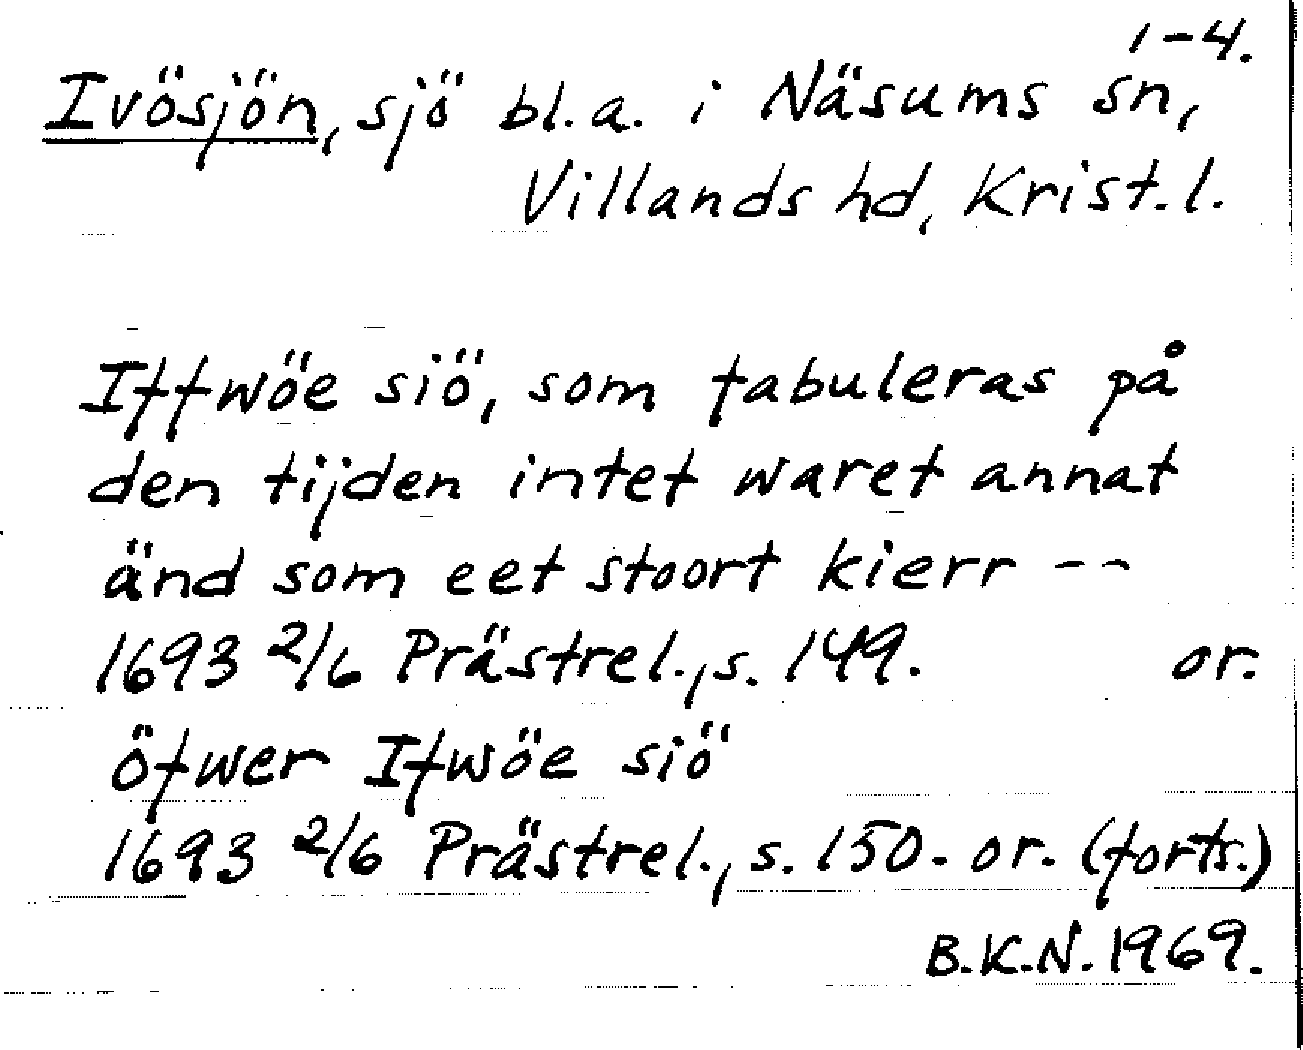 1-4.
Ivösjön, sjö bl.a. i Näsums sn,
Villands hd, Krist. l.
Iffwöe siö, som fabuleras på
den tijden intet waret annat
änd som eet stoort kierr --
1693 2/6 Prästrel., s. 149. or.
öfwer Ifwöe siö
1693 2/6 Prästrel., s. 150. or. (forts.)
B.K.N. 1969.